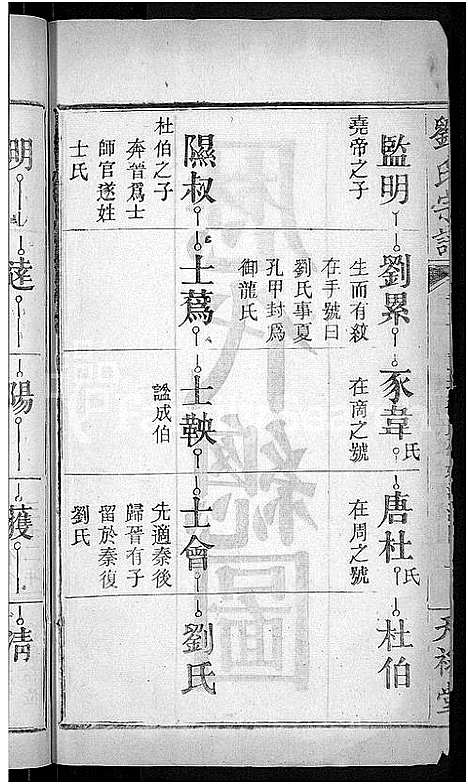 劉氏宗譜
天祿堂
監明
堯帝之子
劉累
生而有紋
在手號曰
劉氏事夏
孔甲封爲
御龍氏
豕韋氏
在商之號
唐杜氏
在周之號
杜伯
隰叔
杜伯之子
奔晉爲士
師官遂姓
士氏
士蔿
士鞅
謚成伯
士會
先適秦後
歸晉有子
留於秦復
劉氏
劉氏
歷代總圖
明
遠
陽
獲
清